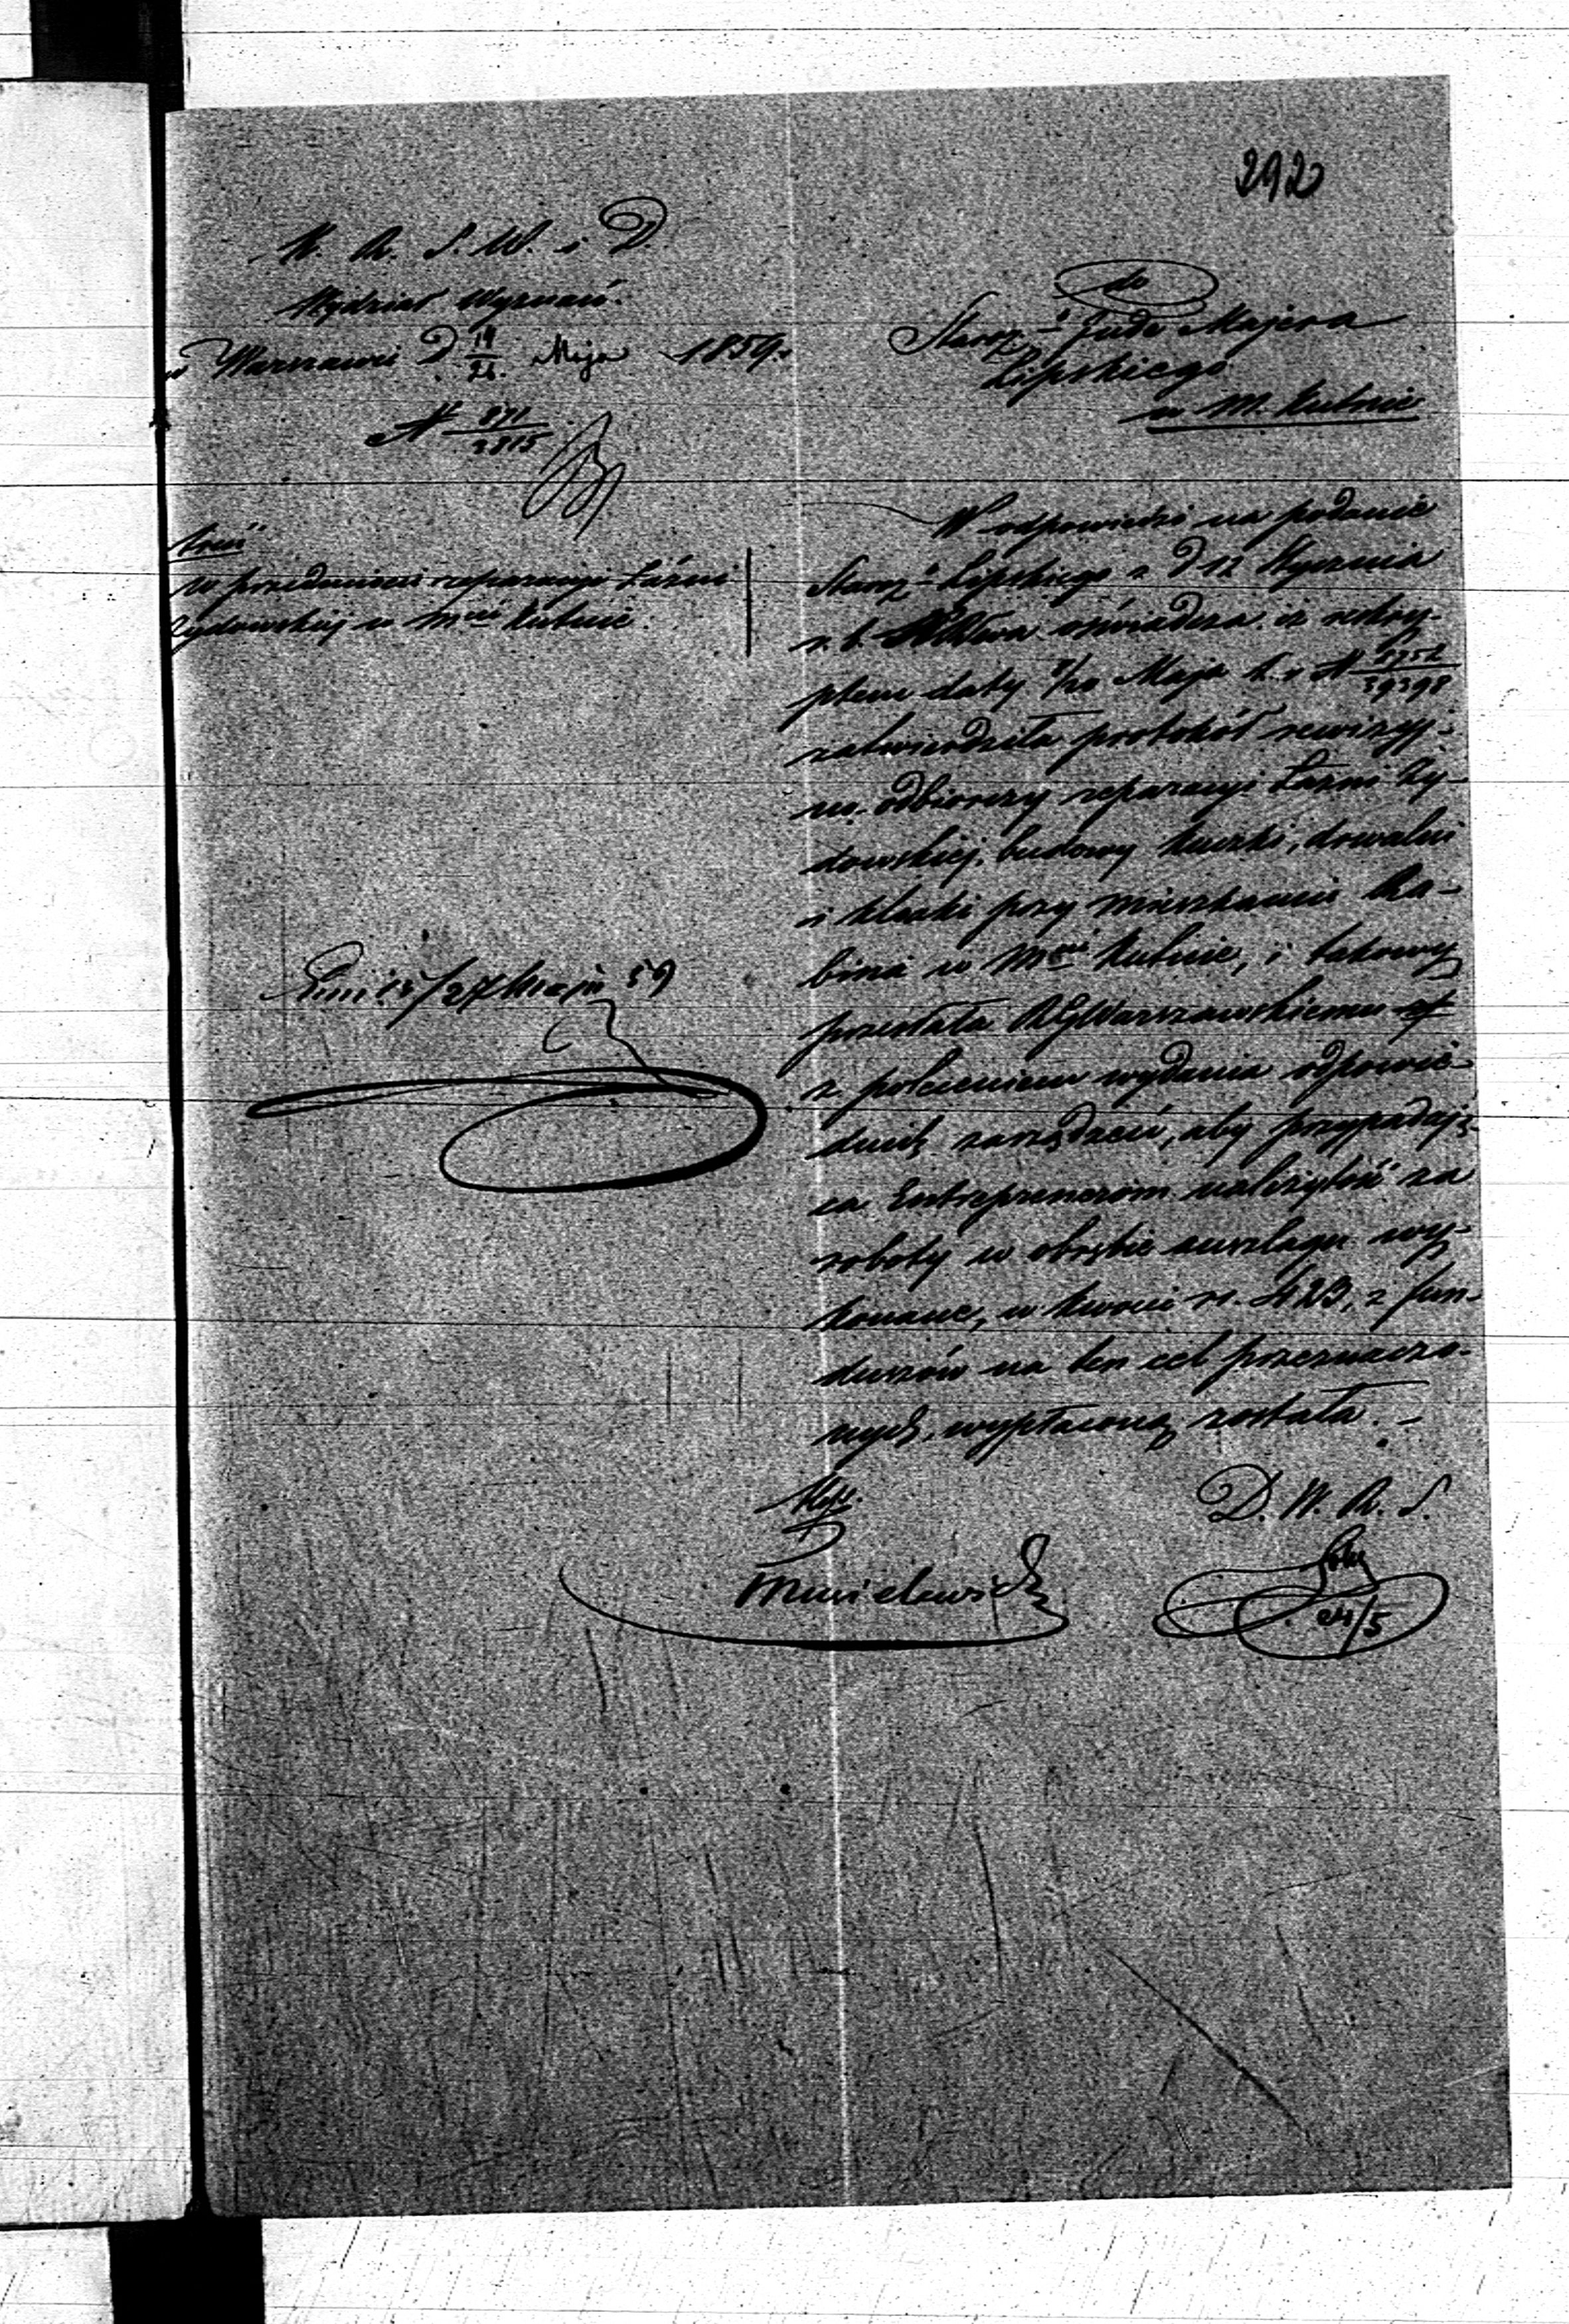 292
K. R. S. W. i D.
Wydział Wyznań.
w Warszawie D 14/26 Maja 1859 r.
N 871/2815
treść
w przedmiocie reparacyi Łaźni
Żydowskiej w mcie Kutnie.
do
Starz. Jude Majera
Lipskiego
w M. Kutnie
W odpowiedzi na podanie
Starz. Lipskiego z D 12 Stycznia
r. b. oświadcza iż reskry-
ptem daty 8/20 Maja b. r. N
zatwierdziła protokół rewizyj-
no-odbiorczy reparacyi Łaźni Ży-
dowskiej, budowy kuczki, drwalni
i kloaki przy mieszkaniu Ra-
bina w Mcie Kutnie, i takowy
przesłała RGWarszawskiemu
z poleceniem wydania odpowie-
dnich zarządzeń, aby przypadają-
ca Entreprenerom należytość za
roboty w obrębie anszlagu wy-
konane, w kwocie rs. 423, z fun-
duszów na ten cel przeznaczo-
nych, wypłaconą została. -
D. W. R. S.
24/5
15/27 Maja 59